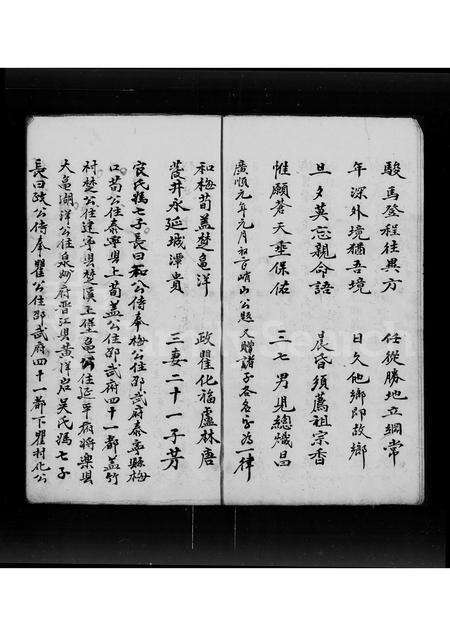 駿馬登程往異方 任從勝地立綱常
年深外境猶吾境 日久他鄉即故鄉
旦夕莫忘親命語 晨昏須薦祖宗香
惟願蒼天垂保佑 三七男兒總熾昌
廣順元年元月初一日峭山公題又贈諸子各名字為一律
和梅荀蓋楚龜洋 政瞿化福盧林唐
營井永延城潭貴 三妻二十一子芳
官氏媽七子長曰和公侍奉梅公住邵武府泰寧縣梅
口荀公住泰寧県上荀蓋公住邵武府四十一都蓋竹
村楚公住建寧県楚溪玉堡龜公住延平府將樂県
大龜湖洋公住泉州府晋江県黃洋岩吳氏媽七子
長曰政公侍奉瞿公住邵武府四十一都下瞿村化公